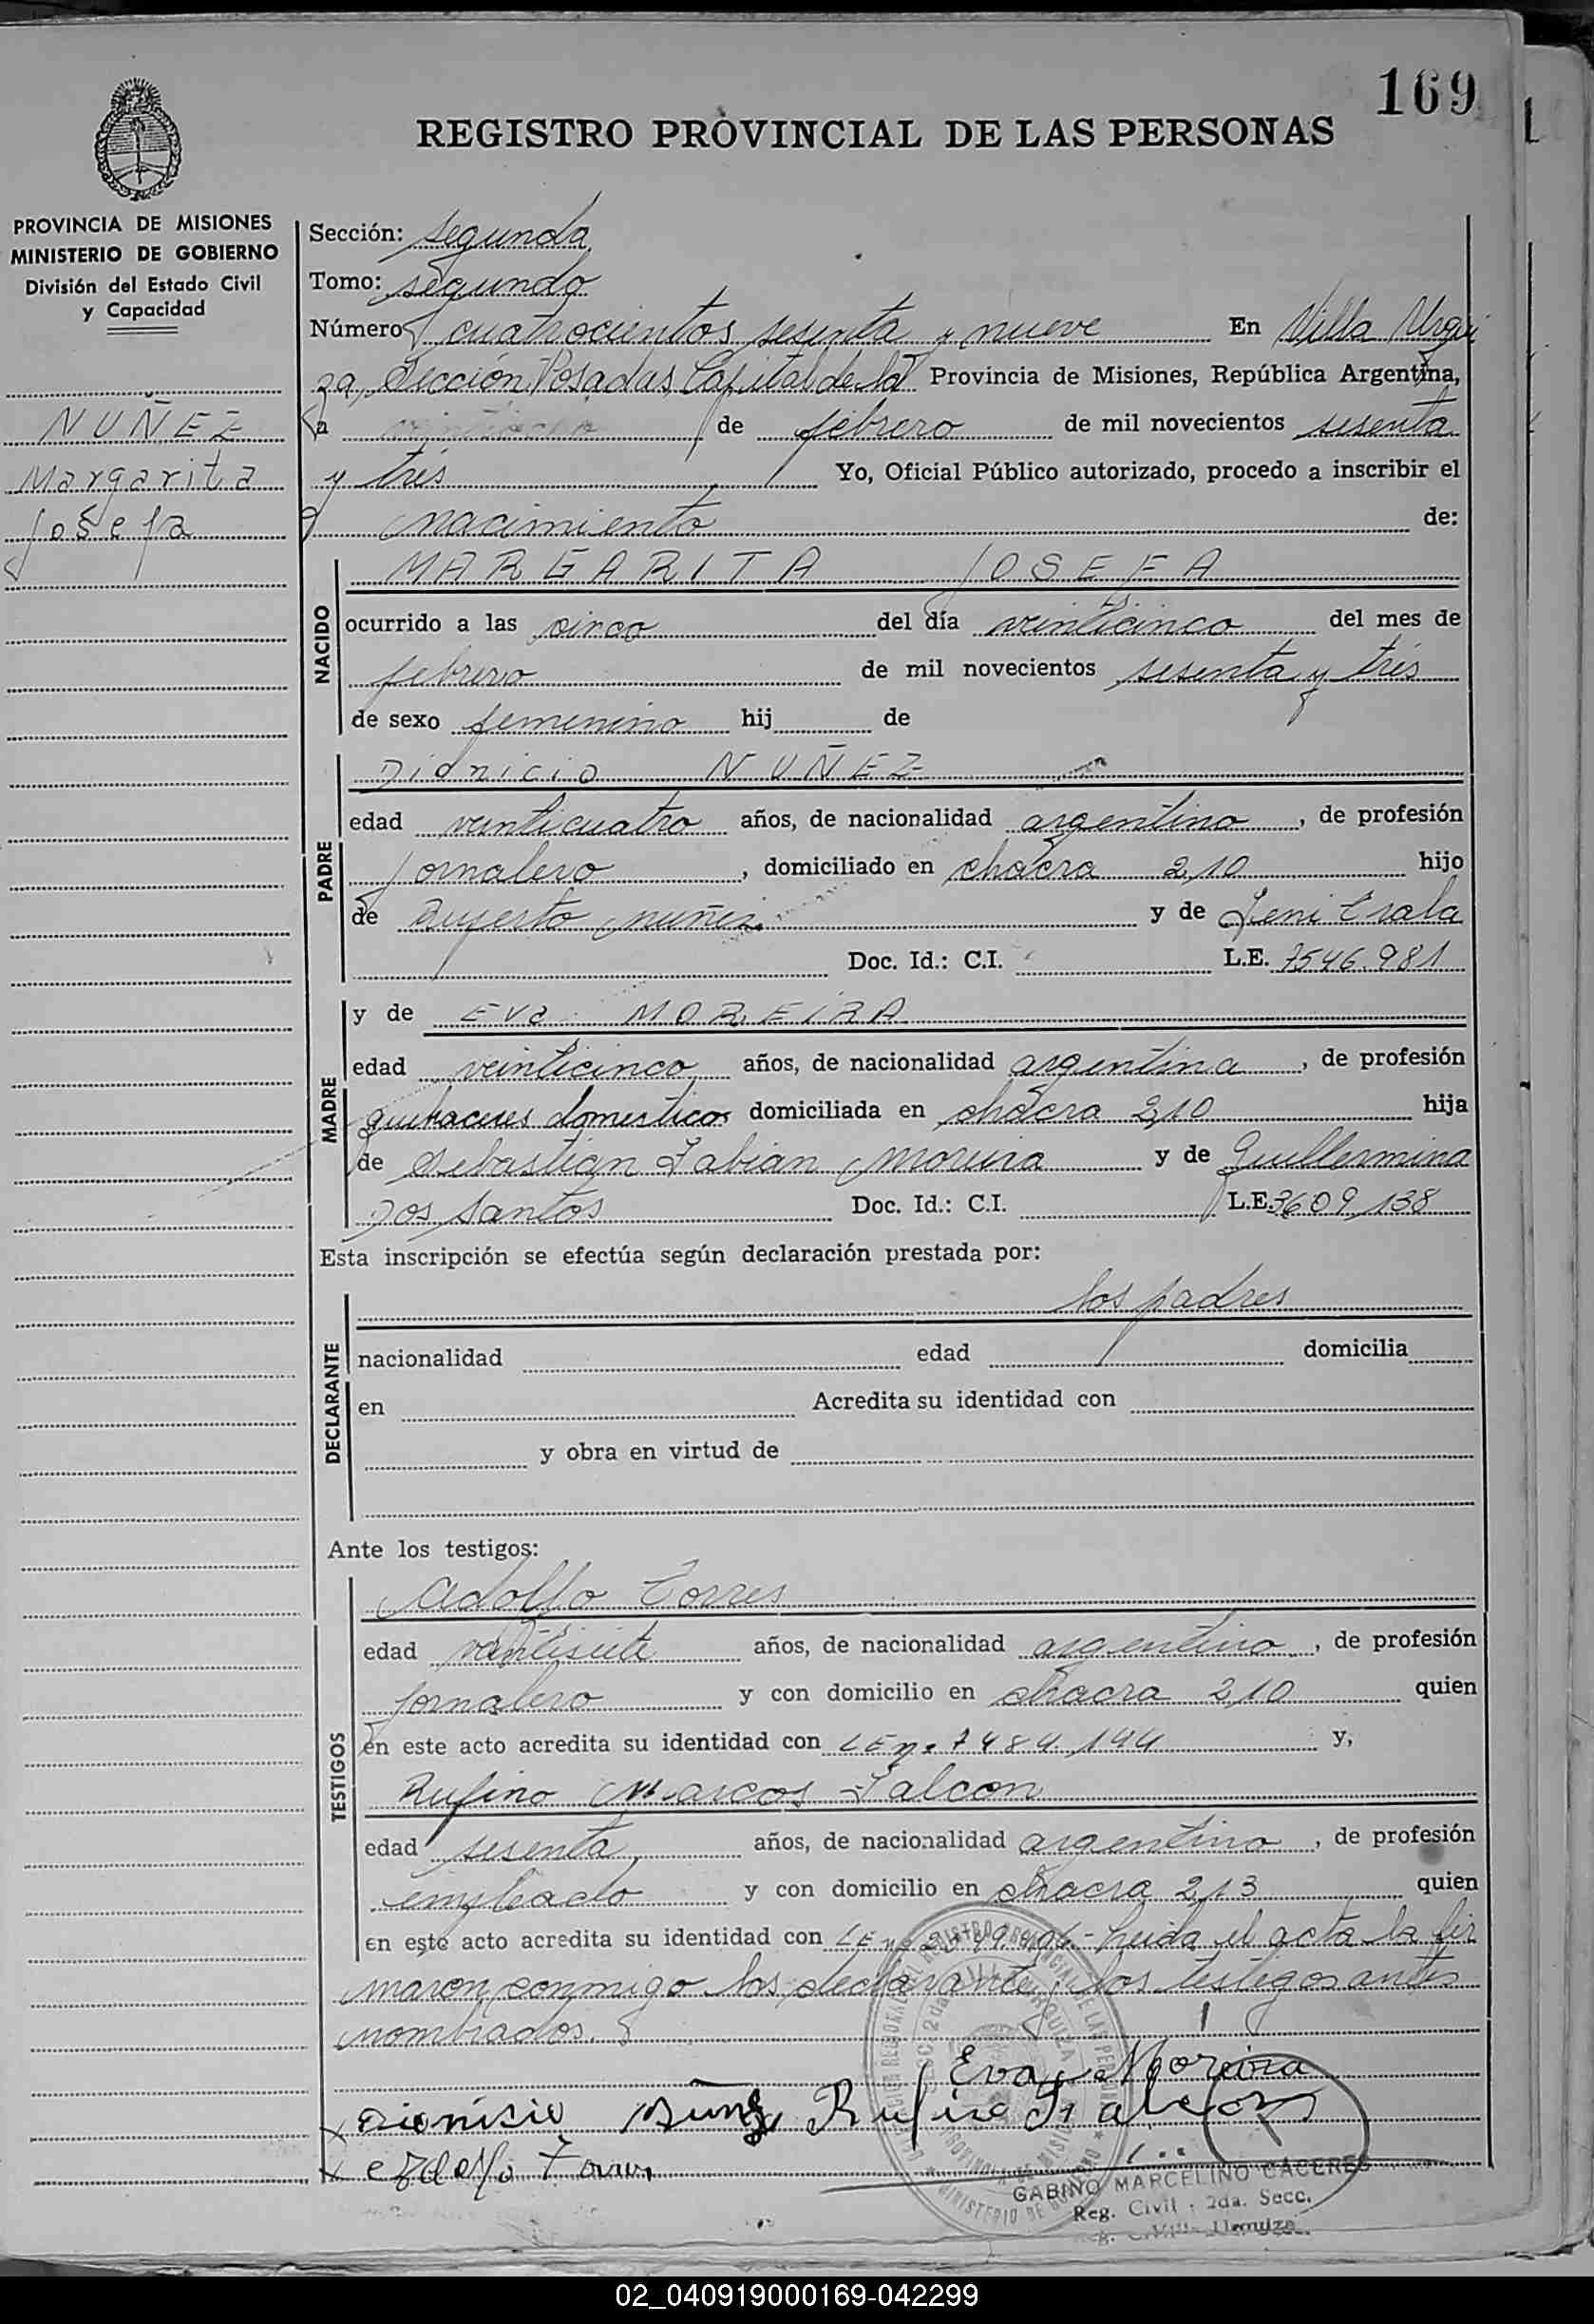 169
REGISTRO PROVINCIAL DE LAS PERSONAS
PROVINCIA DE MISIONES
MINISTERIO DE GOBIERNO
División del Estado Civil
y Capacidad
NUÑEZ
Margarita
Josefa
Sección: segunda
Tomo: segundo
Número cuatrocientos sesenta y nueve En Villa Urqui
za, Sección Posadas, Capital de la Provincia de Misiones, República Argentina,
a veintiocho de febrero de mil novecientos sesenta
y tres Yo, Oficial Público autorizado, procedo a inscribir el
nacimiento de:
NACIDO
MARGARITA JOSEFA
ocurrido a las cinco del día veinticinco del mes de
febrero de mil novecientos sesenta y tres
de sexo femenino hij de
PADRE
Dionicio NUÑEZ
edad veinticuatro años, de nacionalidad argentino, de profesión
jornalero, domiciliado en chacra 210 hijo
de Ruperto Nuñez y de
Doc. Id.: C.I. L.E. 7546.981
MADRE
y de Eva MOREIRA
edad veinticinco años, de nacionalidad argentina, de profesión
quehaceres domesticos domiciliada en chacra 210 hija
de Sebastián Fabián Moreira y de Guillermina
Dos Santos Doc. Id.: C.I. L.E. 3609.138
Esta inscripción se efectúa según declaración prestada por:
DECLARANTE
los padres
nacionalidad edad domicilia
en Acredita su identidad con
y obra en virtud de
Ante los testigos:
TESTIGOS
Adolfo Torres
edad veintisiete años, de nacionalidad argentino, de profesión
jornalero y con domicilio en chacra 210 quien
en este acto acredita su identidad con LE nº 7484.144 y,
Rufino Marcos Falcon
edad sesenta años, de nacionalidad argentino, de profesión
empleado y con domicilio en chacra 213 quien
en este acto acredita su identidad con LE nº Leida el acta la fir
maron conmigo los declarante, los testigos antes
nombrados.
Eva Moreira
Dionisio Nuñez Rufino Falcon
Adolfo Torres
GABINO MARCELINO CACERES
Reg. Civil, 2da. Secc.
02_040919000169-042299